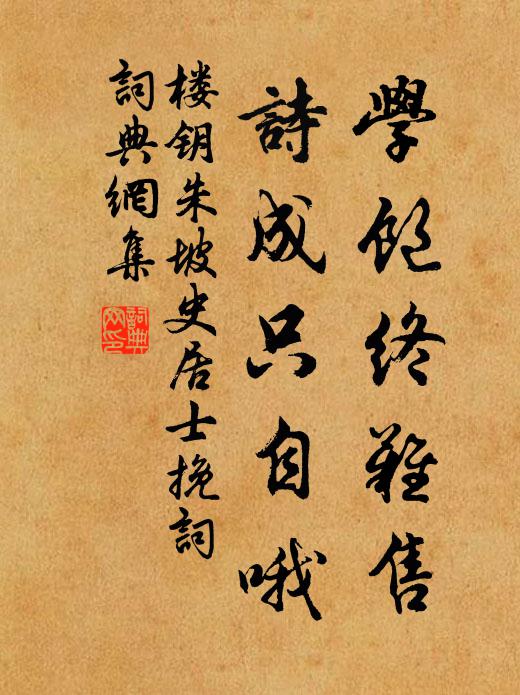 學飽終難售
詩成只自哦
楼钥朱坡史居士挽詞
詞典網集
詞典网印